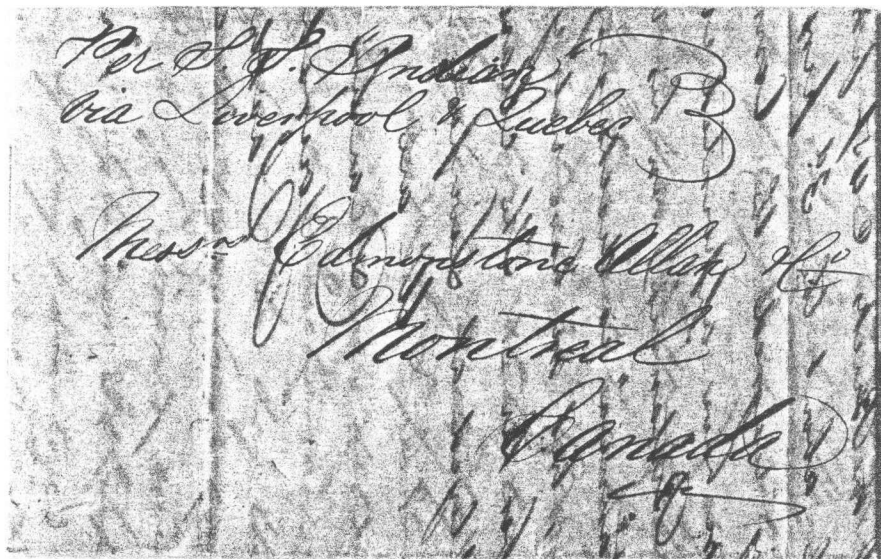 Per S. S. Indian
via Liverpool & Quebec
Messrs Edmonstone Allan & Co
Montreal
Canada